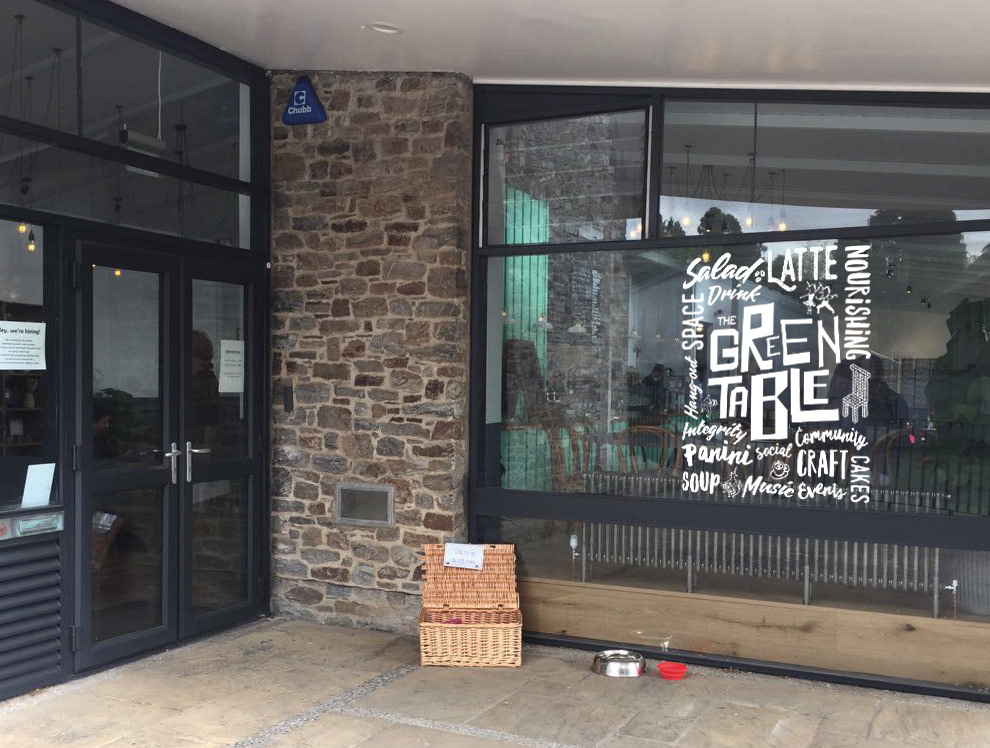 Chubb
hey, we're hiring!
Salad
LATTE
Drink
NOURiSHiNG
SPACE
THE
GREEN
TABLE
Hang-out
Integrity
Panini
Social
Community
CRAFT
CAKES
SOUP
Music
Events